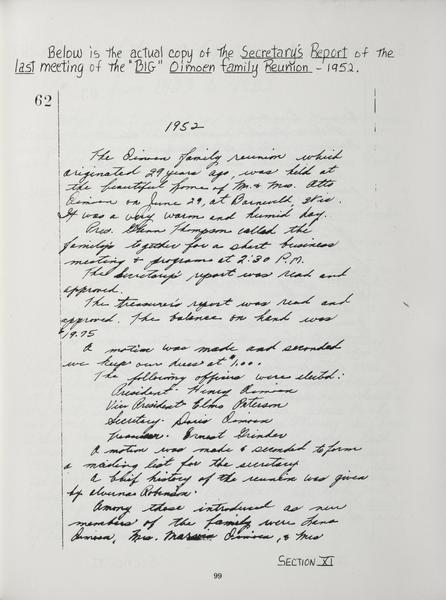 Below is the actual copy of the Secretary's Report of the
last meeting of the "BIG" Oimoen family Reunion - 1952.
62
1952
The Oimoen family reunion which
originated 29 years ago, was held at
the beautiful home of Mr. & Mrs. Otto
Oimoen on June 29, at Barneveld, Wis.
It was a very warm and humid day.
Pres. Glenn Thompson called the
family's together for a short business
meeting & program at 2:30 P.M.
The Secretary's report was read and
approved.
The treasurer's report was read and
approved. The balance on hand was
$19.75
A motion was made and seconded
we keep our dues at $1.00.
The following officers were elected:
President - Henry Oimoen
Vice President - Elmo Peterson
Secretary - Doris Oimoen
Treasurer - Ernest Grinder
A motion was made & seconded to form
a mailing list for the secretary
A brief history of the reunion was given
by Robinson.
Among those introduced as new
members of the family were Lana
Oimoen, Mrs. Oimoen, & Mrs
SECTION XI
99